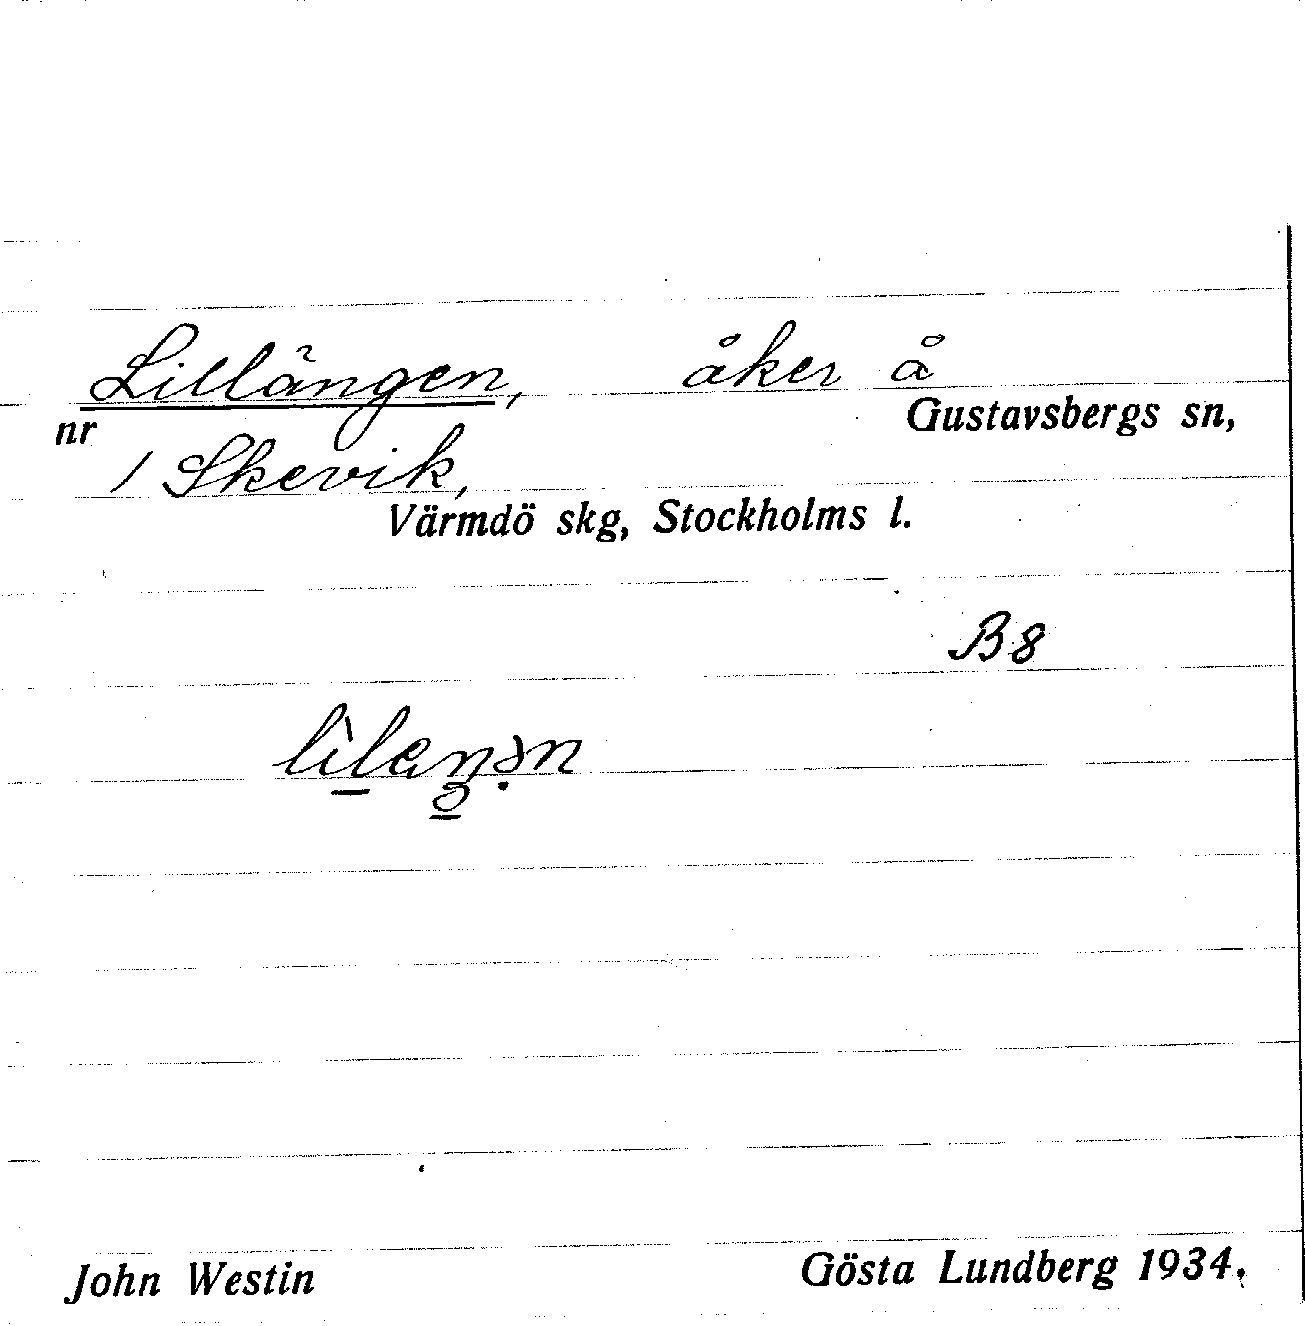 Lillängen, åker å
nr Gustavsbergs sn,
1 Skevik,
Värmdö skg, Stockholms l.
B 8
John Westin Gösta Lundberg 1934.